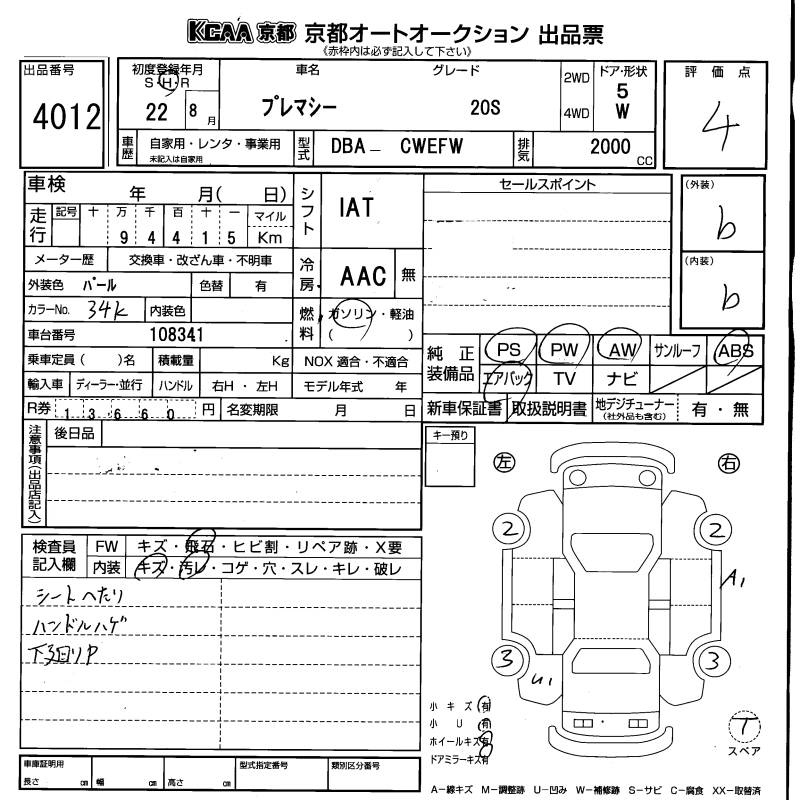 KCAA京都 京都オートオークション 出品票
《赤枠内は必ず記入して下さい》
出品番号
4012
初度登録年月
S・H・R
22 8 月
車名
プレマシー
グレード
20S
2WD
4WD
ドア・形状
5
W
評価点
4
車歴
自家用・レンタ・事業用
未記入は自家用
型式
DBA－ CWEFW
排気
2000 CC
車検 年 月( 日)
走行
記号 十 万 千 百 十 一 マイル
9 4 4 1 5 Km
メーター歴 交換車・改ざん車・不明車
外装色 パール 色替 有
カラーNo. 34K 内装色
車台番号 108341
乗車定員( )名 積載量 Kg
輸入車 ディーラー・並行 ハンドル 右H・左H
R券 13660 円 名変期限 月 日
シフト IAT
冷房 AAC 無
燃料 ガソリン・軽油
( )
NOX 適合・不適合
モデル年式 年
セールスポイント
(外装)
b
(内装)
b
純正装備品
PS PW AW サンルーフ ABS
エアバック TV ナビ
新車保証書 取扱説明書 地デジチューナー (社外品も含む) 有・無
注意事項(出品店記入)
後日品
キー預り
検査員記入欄
FW キズ・飛石・ヒビ割・リペア跡・X要
内装 キズ・汚レ・コゲ・穴・スレ・キレ・破レ
シートへたり
ハンドルハゲ
下回りP
左 右
2 2
A1
3 3
U1
小キズ 有
小U 有
ホイールキズ 有
ドアミラーキズ 有
T
スペア
車庫証明用
長さ cm 幅 cm 高さ cm
型式指定番号
類別区分番号
A－線キズ M－調整跡 U－凹み W－補修跡 S－サビ C－腐食 XX－取替済